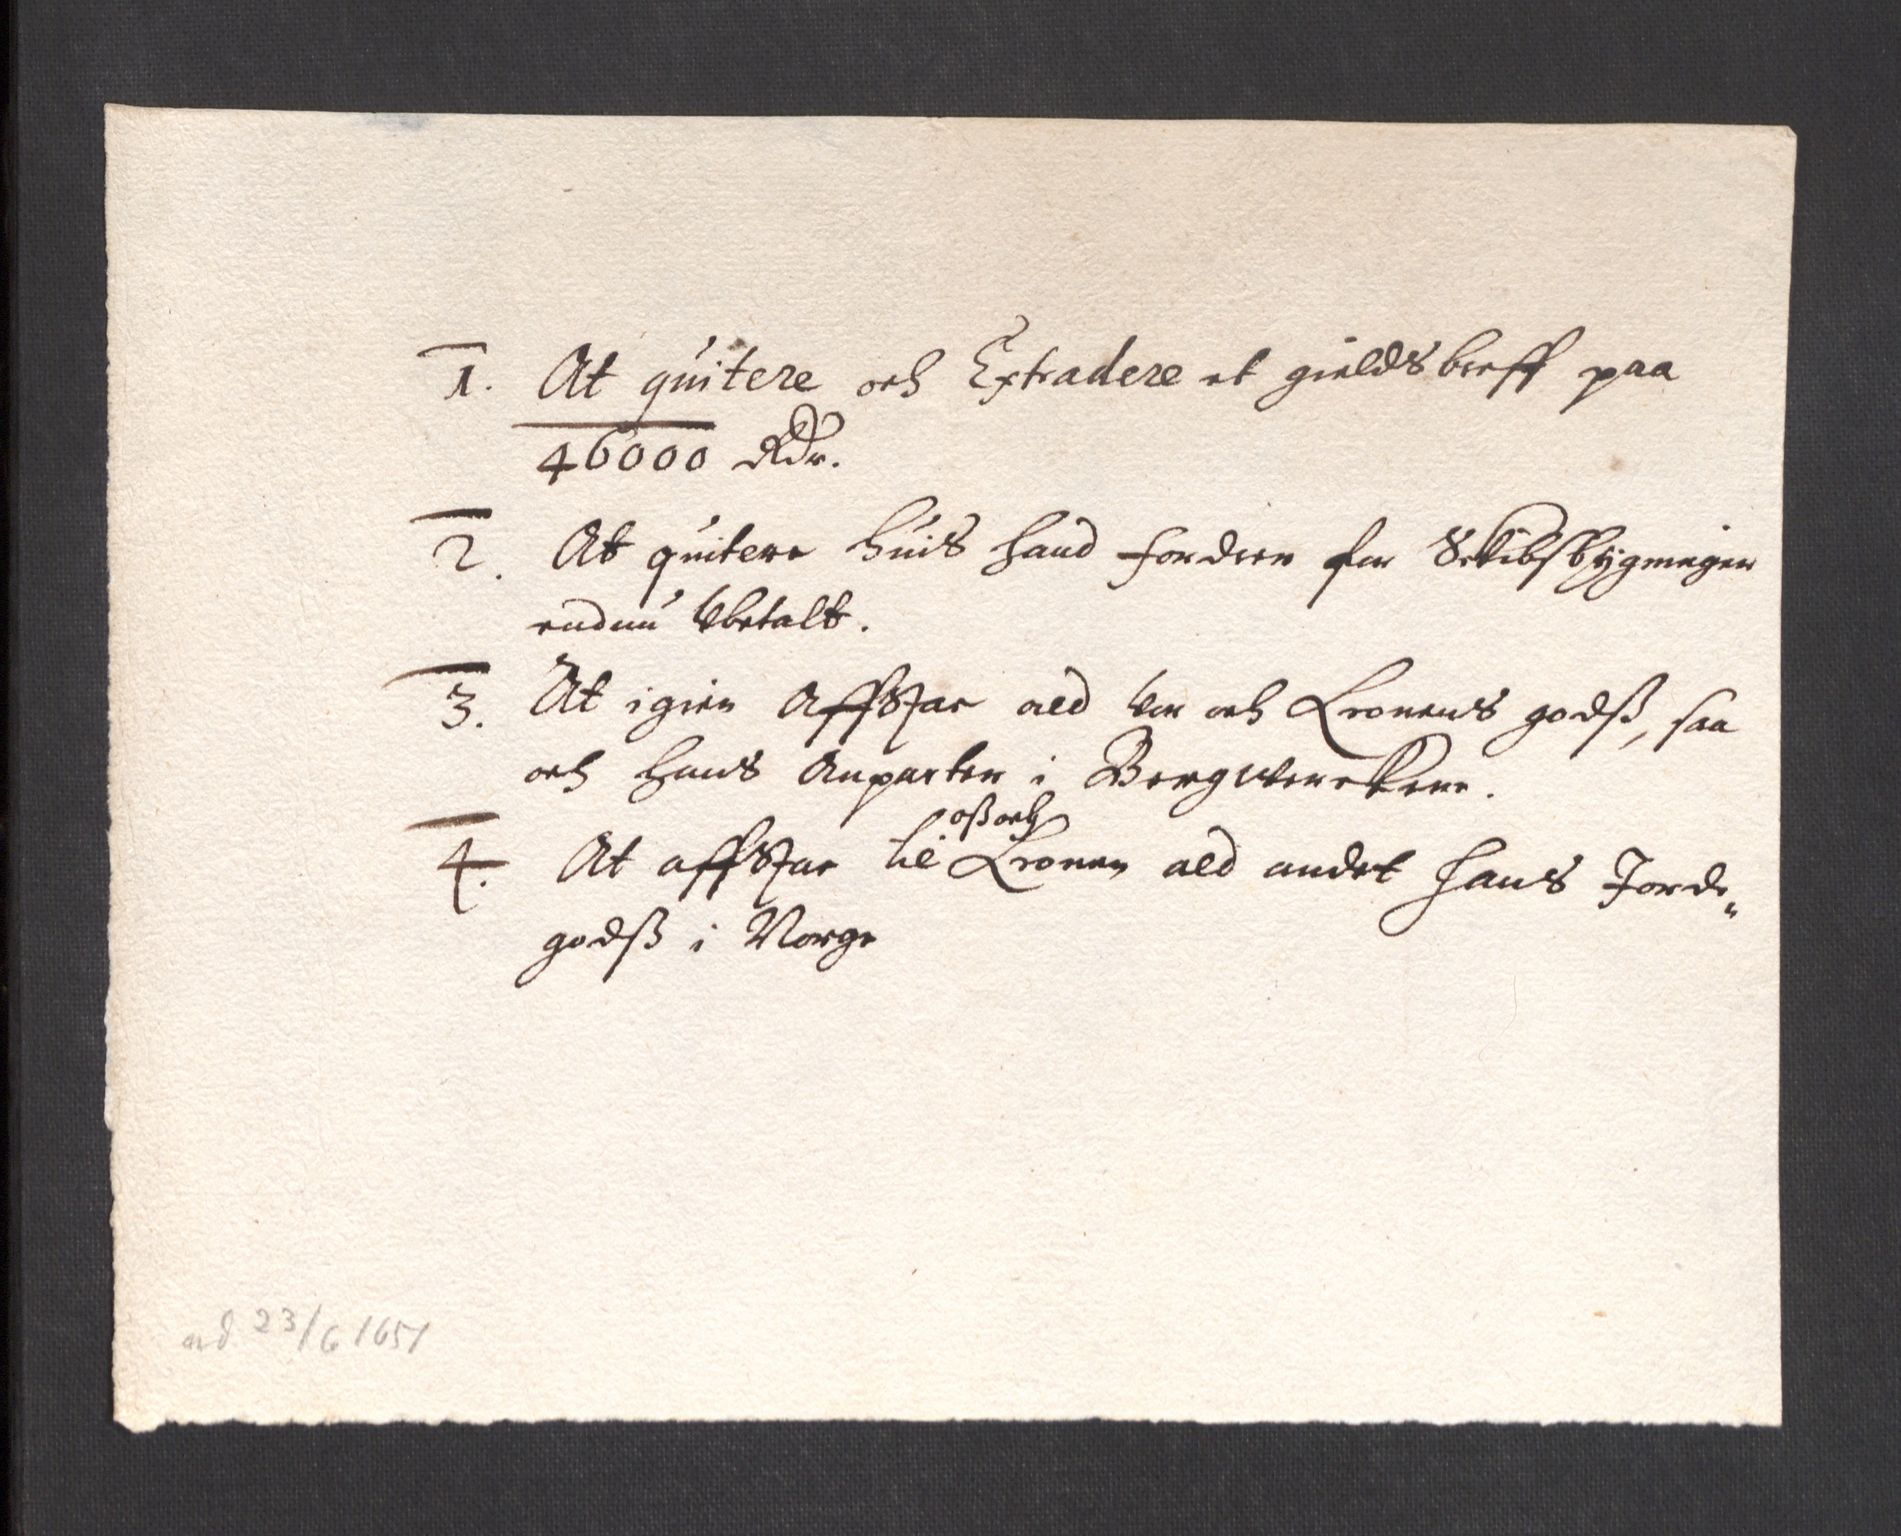 1. At quitere och Extradere et gieldsbreff paa
46000 Rdr.
2. At quitere huis hand fordrer for Skibsbygninger
endnu Vbetalt.
3. At igien Affstae ald vor och Cronens godß, saa
och hans Anparter i Bergwerckene.
oß och
4. At affstae til Cronen ald andet hans Jorde„
godß i Norge
23/6 1651